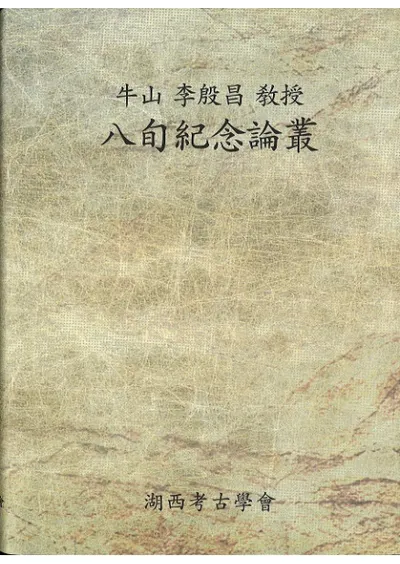 牛山 李殷昌 敎授
八旬紀念論叢
湖西考古學會